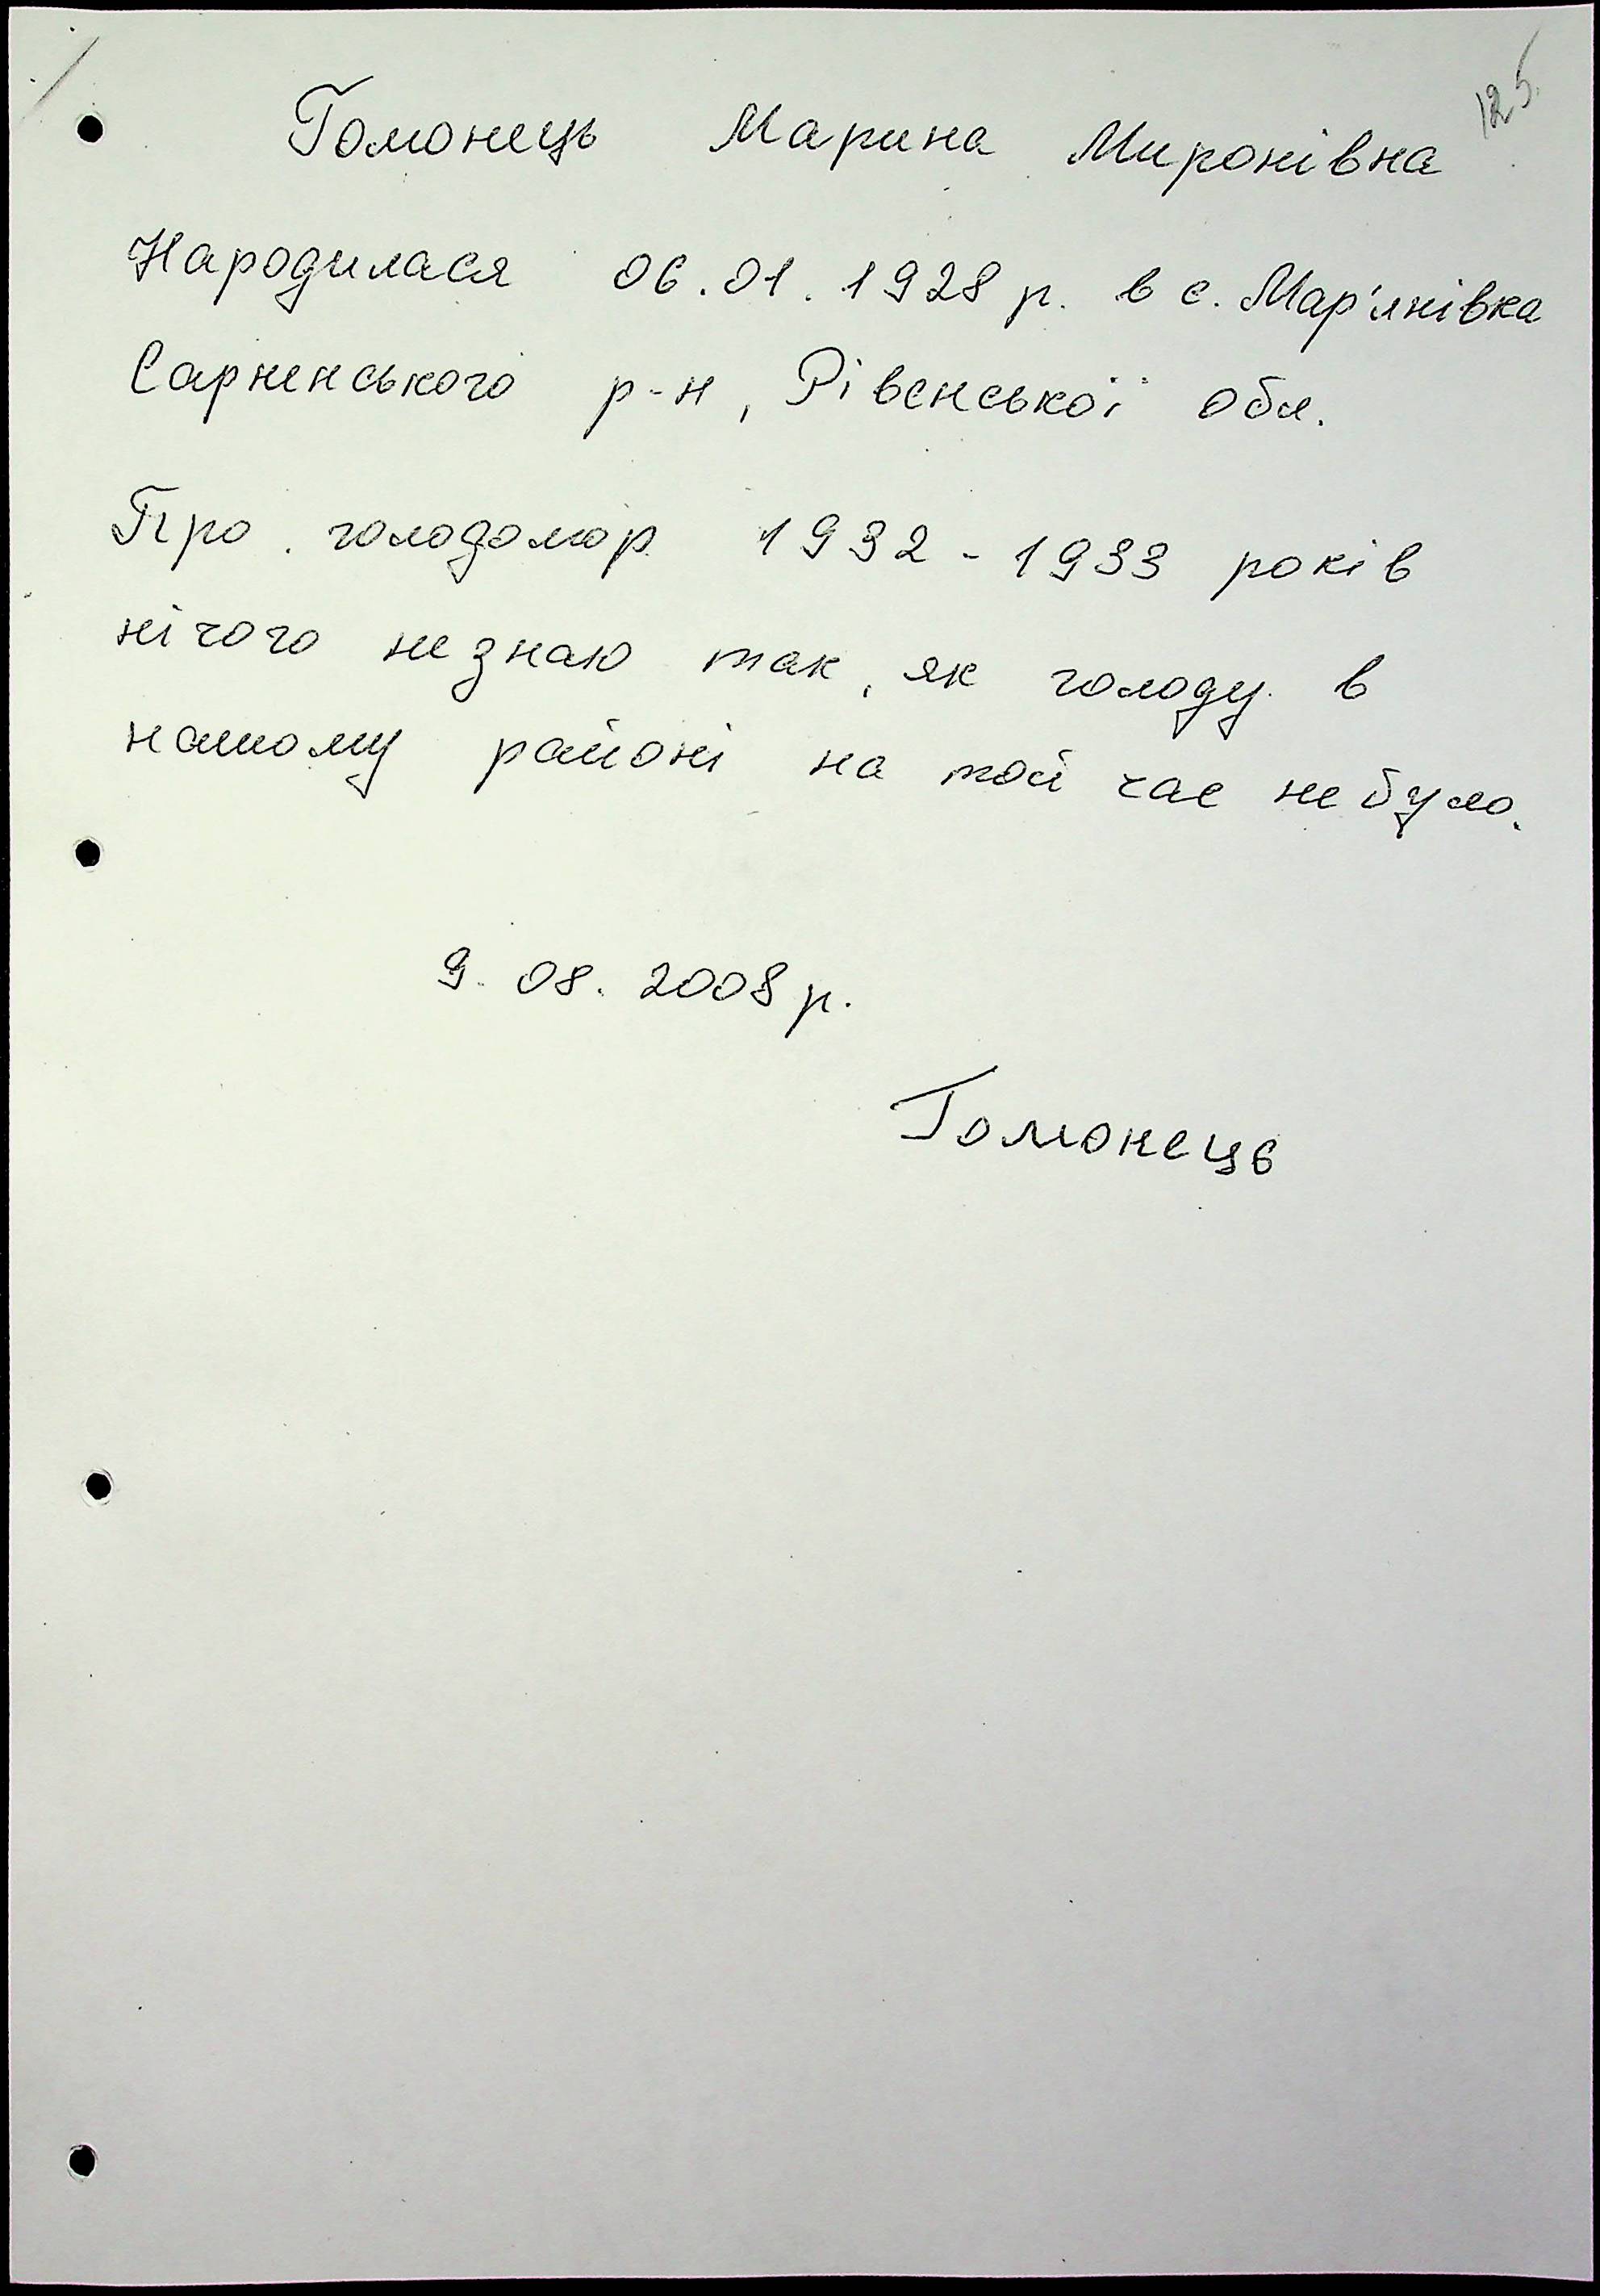 125
Гомонець Марина Миронівна
Народилася 06.01.1928 р. в с. Мар'янівка
Сарненського р-н, Рівенської обл.
Про голодомор 1932-1933 років
нічого не знаю так, як голоду в
нашому районі на той час не було.
9.08.2008 р.
Гомонець